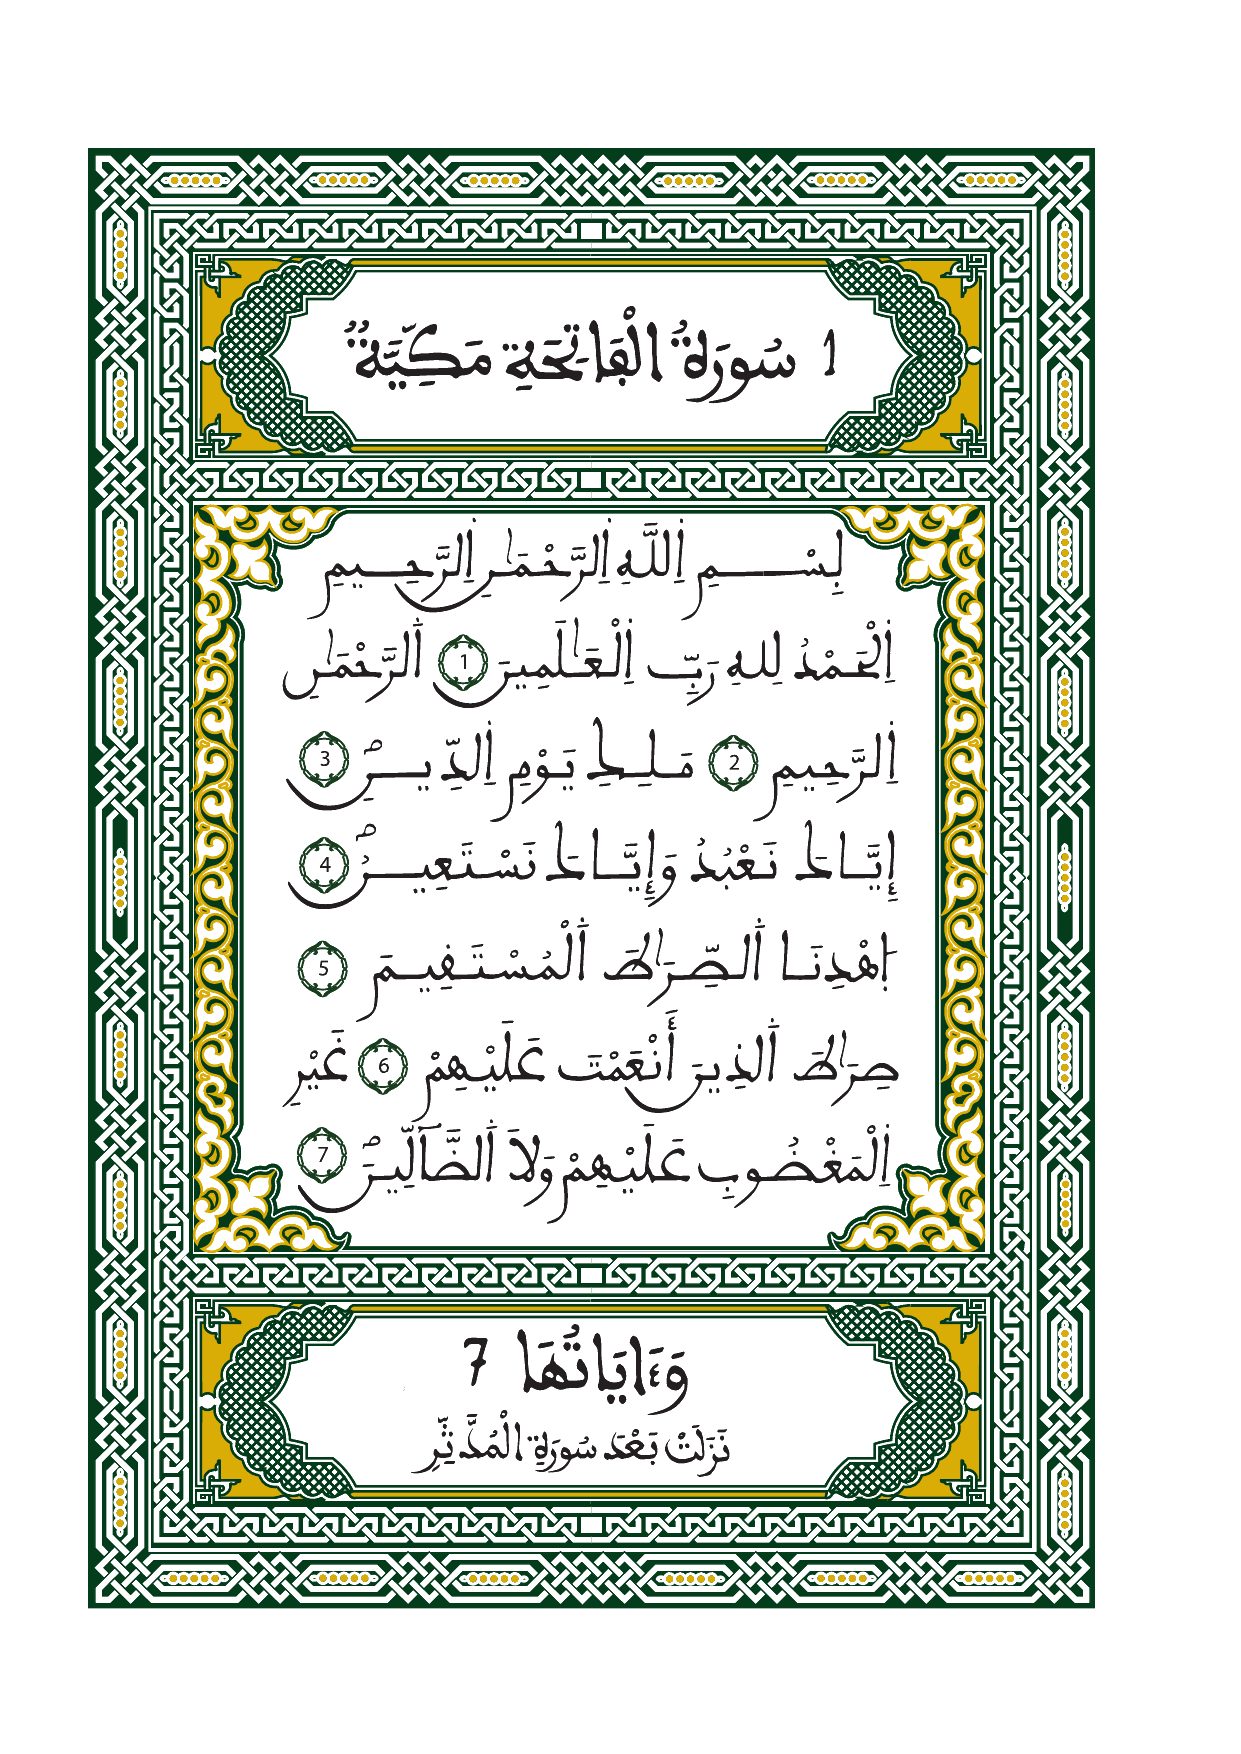 1 سُورَةُ الْفَاتِحَةِ مَكِّيَّةٌ
بِسْمِ اِللَّهِ اِلرَّحْمَٰنِ اِلرَّحِيمِ
اِلْحَمْدُ لِلهِ رَبِّ اِلْعَٰلَمِينَ 1 اَلرَّحْمَٰنِ
اِلرَّحِيمِ 2 مَلِكِ يَوْمِ اِلدِّينِ 3
إِيَّاكَ نَعْبُدُ وَإِيَّاكَ نَسْتَعِينُ 4
اِهْدِنَا اَلصِّرَٰطَ اَلْمُسْتَقِيمَ 5
صِرَٰطَ اَلذِينَ أَنْعَمْتَ عَلَيْهِمْ 6 غَيْرِ
اِلْمَغْضُوبِ عَلَيْهِمْ وَلَا اَلضَّآلِّينَ 7
وَءَايَاتُهَا 7
نَزَلَتْ بَعْدَ سُورَةِ الْمُدَّثِّرِ